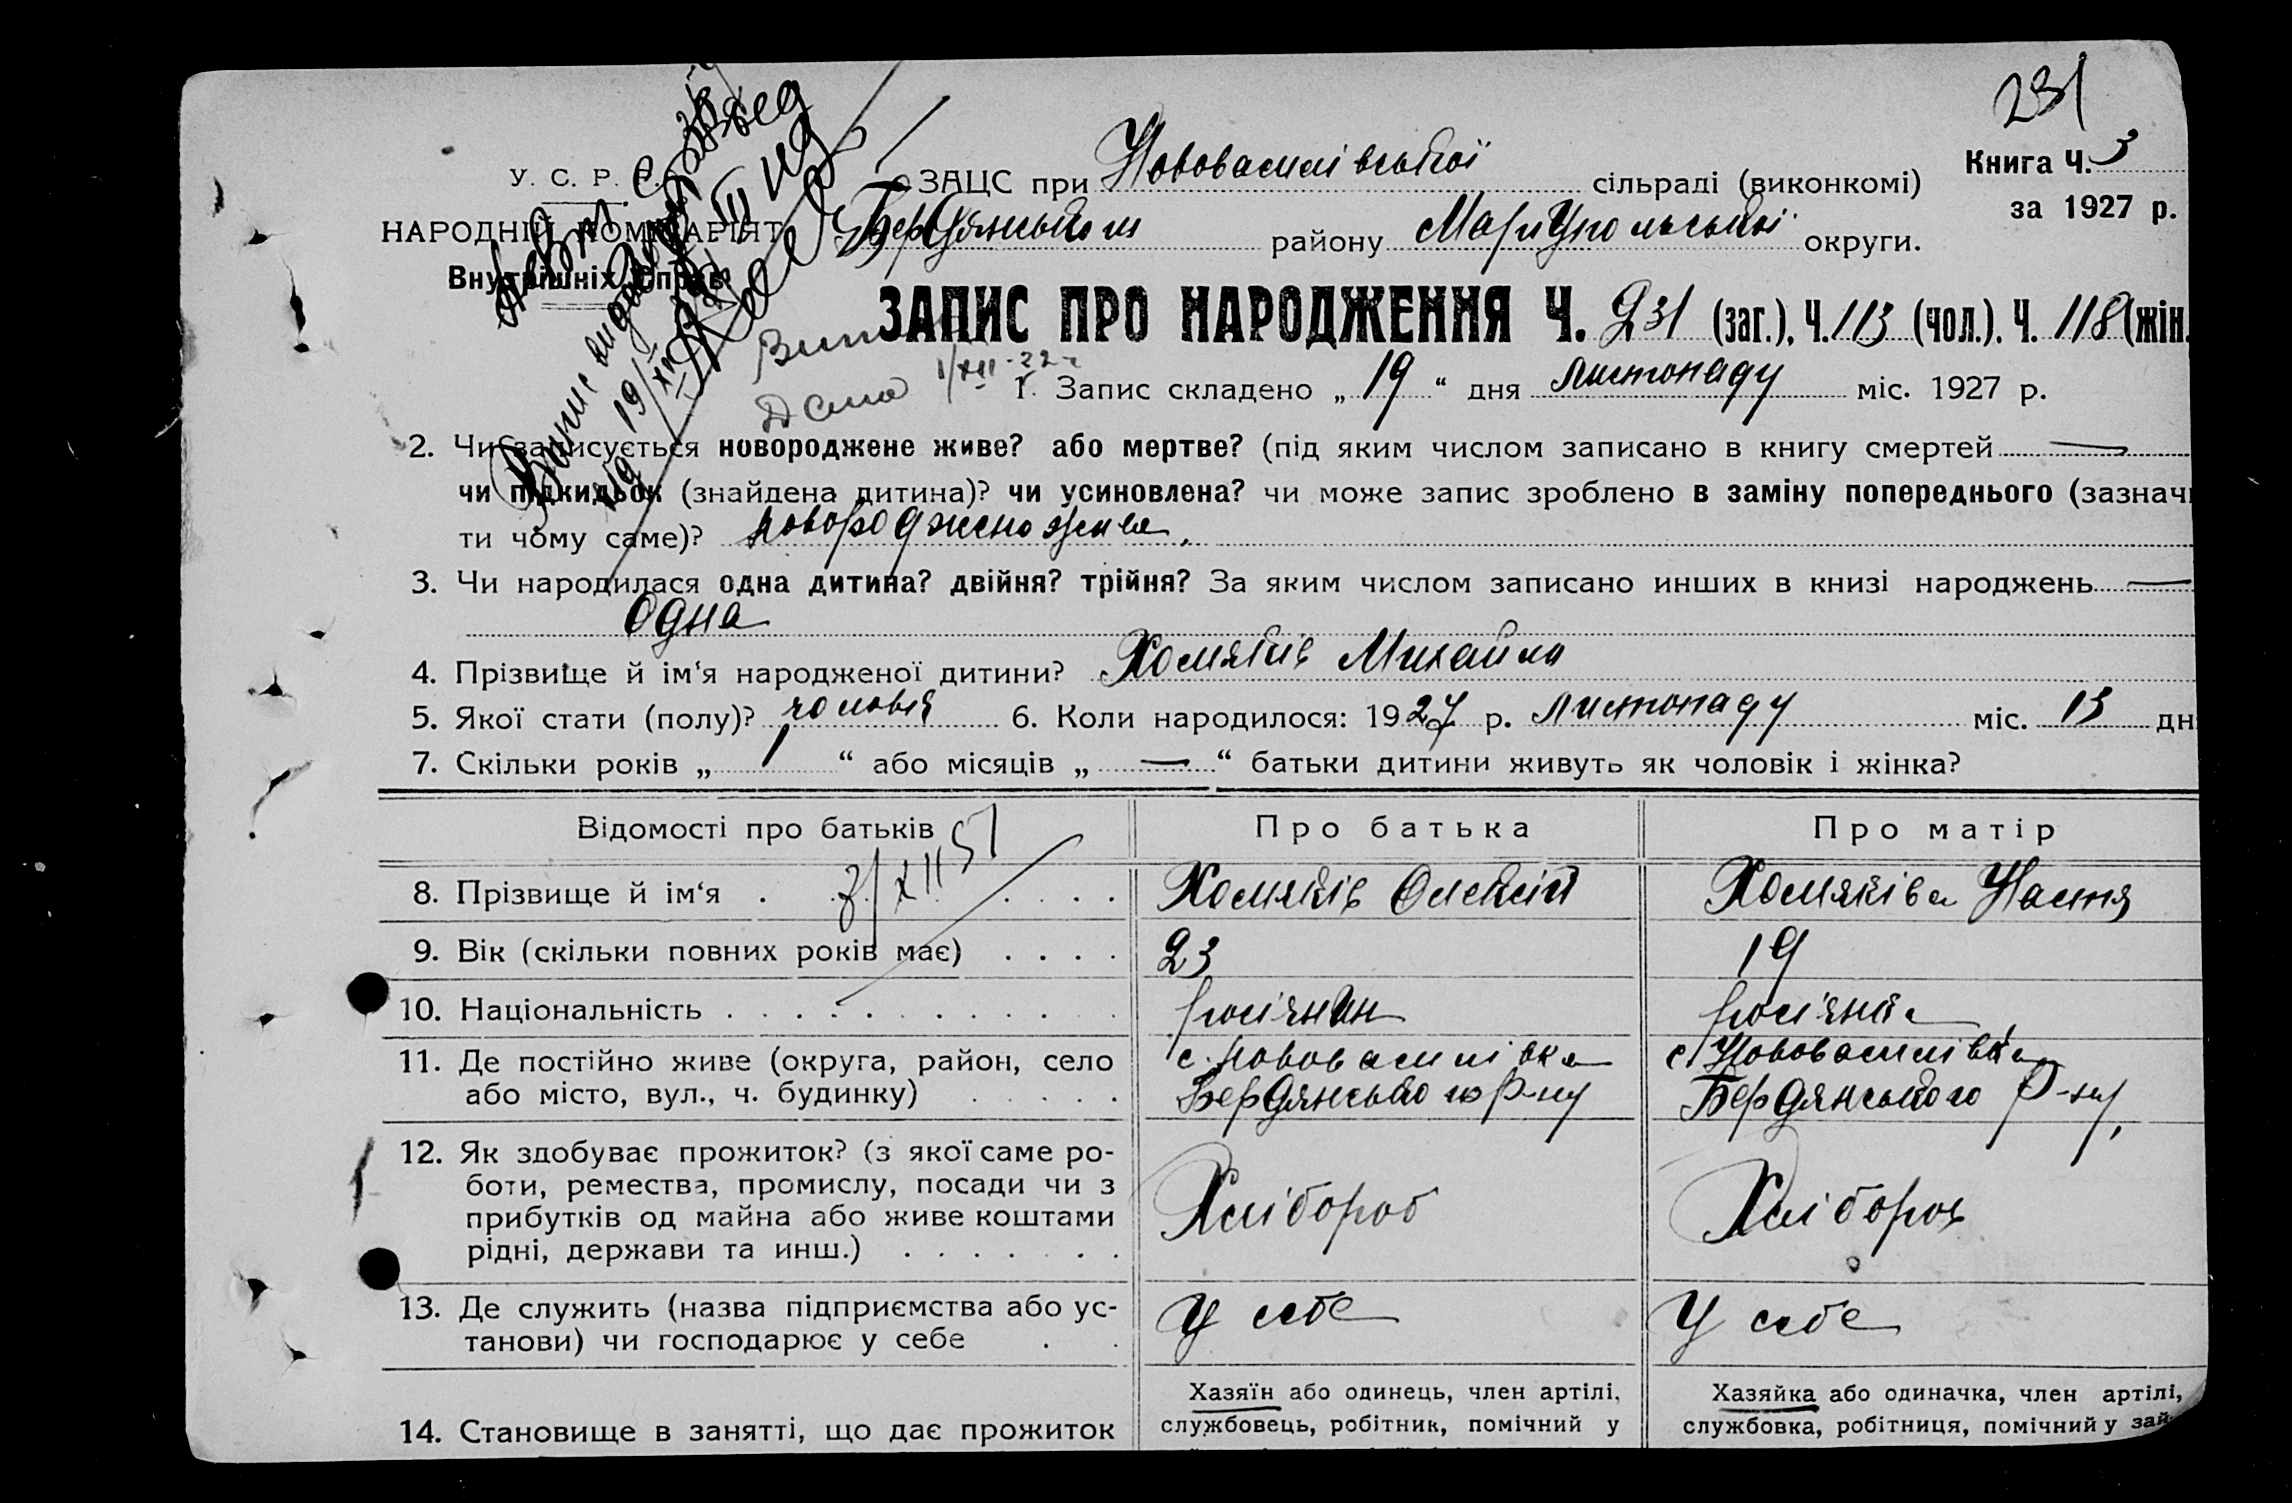 231
Книга Ч. 3
за 1927 р.
У. С. Р. Р.
НАРОДНІЙ КОМІСАРІЯТ
Внутрішніх Справ
ЗАЦС при Нововасилівської сільраді (виконкомі)
Бердянського району Маріупольської округи.
ЗАПИС ПРО НАРОДЖЕННЯ Ч. 231 (заг.), Ч. 113 (чол.). Ч. 118 (жін.
1. Запис складено „ 19 “ дня листопаду міс. 1927 р.
2. Чи записується новороджене живе? або мертве? (під яким числом записано в книгу смертей —
чи підкидьок (знайдена дитина)? чи усиновлена? чи може запис зроблено в заміну попереднього (зазначи
ти чому саме)? новороджено живе.
3. Чи народилася одна дитина? двійня? трійня? За яким числом записано инших в книзі народжень —
Одна
4. Прізвище й ім‘я народженої дитини? Хомяків Михайло
5. Якої стати (полу)? чоловіч 6. Коли народилося: 1927 р. листопаду міс. 13 дн
7. Скільки років „ 1 “ або місяців „ — “ батьки дитини живуть як чоловік і жінка?
Відомості про батьків Про батька Про матір
3/XII 51
8. Прізвище й ім‘я Хомяків Олексій Хомяківа Настя
9. Вік (скільки повних років має) 23 19
10. Національність росіянин росіянка
11. Де постійно живе (округа, район, село с. Нововасилівка с. Нововасилівка
або місто, вул., ч. будинку) Бердянського р-ну Бердянського р-ну,
12. Як здобуває прожиток? (з якої саме ро-
боти, ремества, промислу, посади чи з Хлібороб Хлібороб
прибутків од майна або живе коштами
рідні, держави та инш.)
13. Де служить (назва підприємства або ус- У себе У себе
танови) чи господарює у себе
Хазяїн або одинець, член артілі, Хазяйка або одиначка, член артілі,
14. Становище в занятті, що дає прожиток службовець, робітник, помічний у службовка, робітниця, помічний у зай